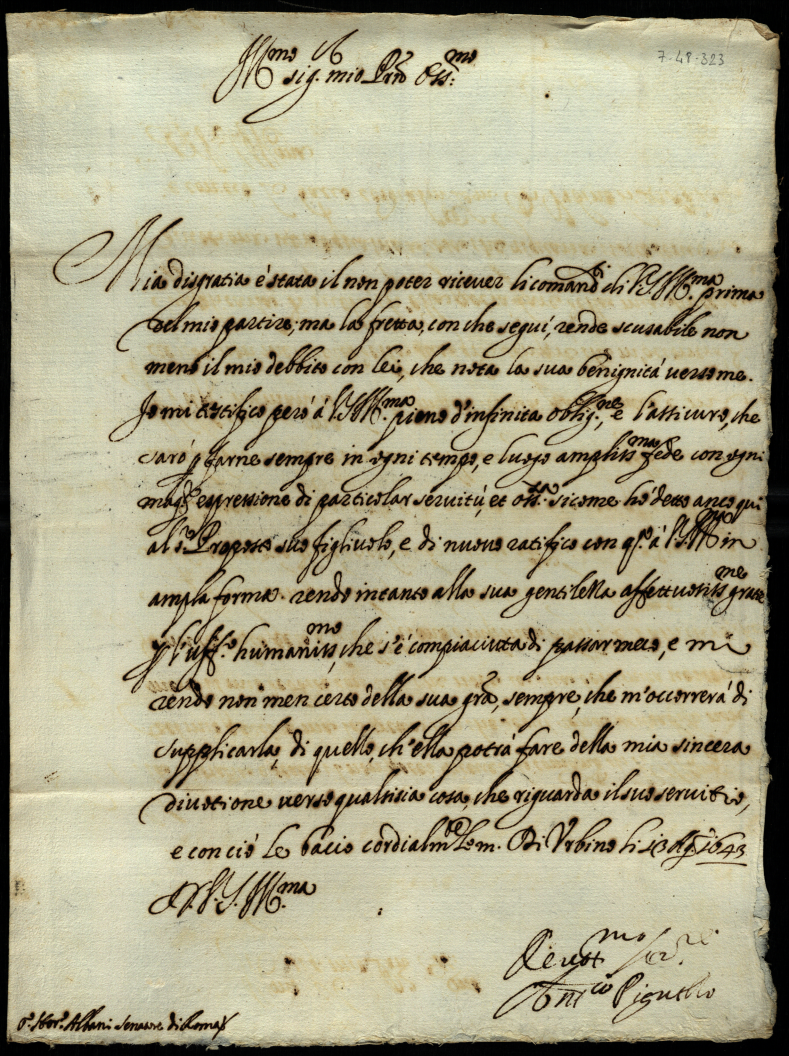 7-48-323
Ill.mo
sig. mio Pron Oss.mo
Mia disgratia é stata il non poter ricever li comandi di V.S. Ill.ma prima
del mio partire; ma la fretta, con che seguí, rende scusabile non
meno il mio debbito con lei, che nota la sua benignitá verso me.
Io mi testifico peró á V.S. Ill.ma pieno d'infinita oblig.ne e l'assicuro, che
saró p farne sempre in ogni tempo, e luogo ampliss.ma fede con ogni
mag.r espressione di particolar servitú, et oss.za sicome hó detto anco qui
al s.r Proposto suo figlivolo, e di nuovo ratifico con q.a á V.S. Ill.ma in
ampla forma. rendo intanto alla sua gentilezza affettuosiss.me gratie
p l'uff.o humaniss.mo, che s'é compiaciuta di passar meco, e mi
rendo non men certo della sua gra, sempre, che m'occorrerá di
supplicarla, di quello, ch'ella potrá fare della mia sincera
divotione verso qualsisia cosa, che riguarda il suo servitio,
e con ció le bacio cordialm.te le m. Di Urbino li 13 Ag.o 1643
D V.S. Ill.ma
Devot.mo ser.re
Ant.co
s.r Hor.o Albani senatore di Roma